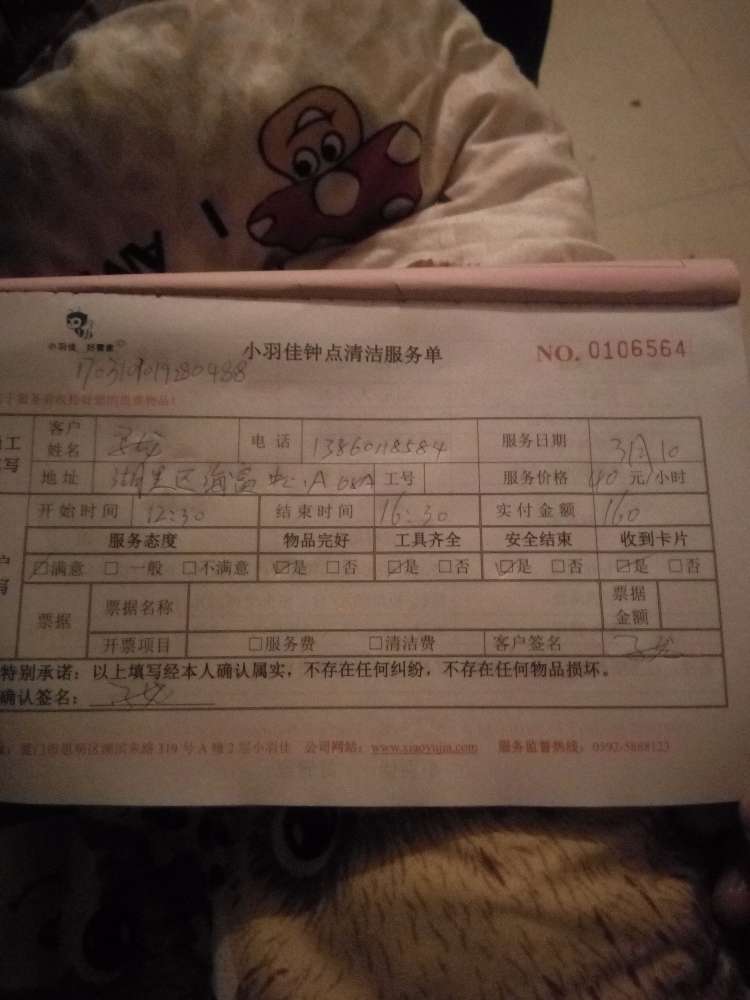 I
AM
小羽佳 好管家
小羽佳钟点清洁服务单
NO. 0106564
170319019280488
客户姓名 电话 13860118584 服务日期 3月10
地址 湖里区海富 A 08A 工号 服务价格 40 元/小时
开始时间 12:30 结束时间 16:30 实付金额 160
服务态度 物品完好 工具齐全 安全结束 收到卡片
☑满意 □一般 □不满意 ☑是 □否 ☑是 □否 ☑是 □否 ☑是 □否
票据 票据名称 票据金额
开票项目 □服务费 □清洁费 客户签名
特别承诺：以上填写经本人确认属实，不存在任何纠纷，不存在任何物品损坏。
确认签名：
厦门市思明区湖滨东路 319 号 A 幢 2 层小羽佳 公司网站：www.xiaoyujia.com 服务监督热线：0592-5888123